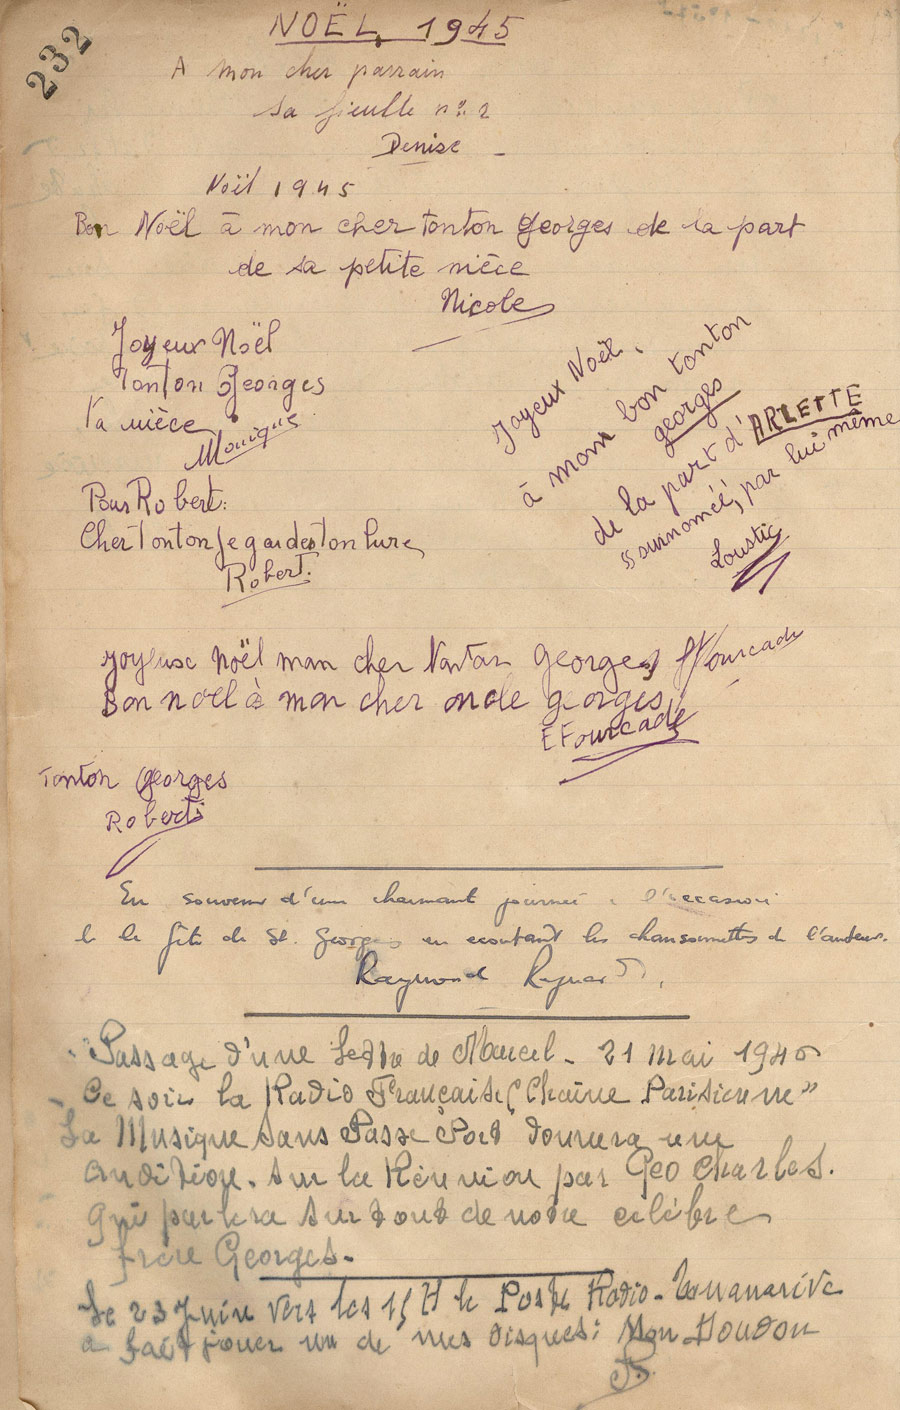 232
NOËL 1945
A mon cher parrain
sa fieulle n° 2
Denise
Noël 1945
Bon Noël à mon cher tonton georges de la part
de sa petite nièce
Nicole
Joyeux Noël
Tonton Georges
Ta nièce
Monique
Joyeux Noël.
à mon bon tonton
georges
de la part d'ARLETTE
"surnomée, par lui même
Loustic
Pour Robert:
Cher Tonton Je gardes ton livre
Robert.
Joyeuse Noël man cher Georges Fourcade
Bon noel à mon cher oncle georges
E Fourcade
Tonton georges
Robert
En souvenir d'une charmant journée à l'occasion
de la fête de St. Georges en ecoutant les chansonnettes de l'auteur.
Raymond
Passage d'une lettre de Marcel - 21 mai 194
Ce soir la Radio Française (Chaîne Parisienne"
La Musique sans Passe Port donnera une
audition. sur la Réunion par Geo Charles.
qui parlera surtout de notre célèbre
frère Georges-
Le 23 Juin vers les 15 H le Poste Radio-Tananarive
a fait jouer un de mes disques: Mon Doudou